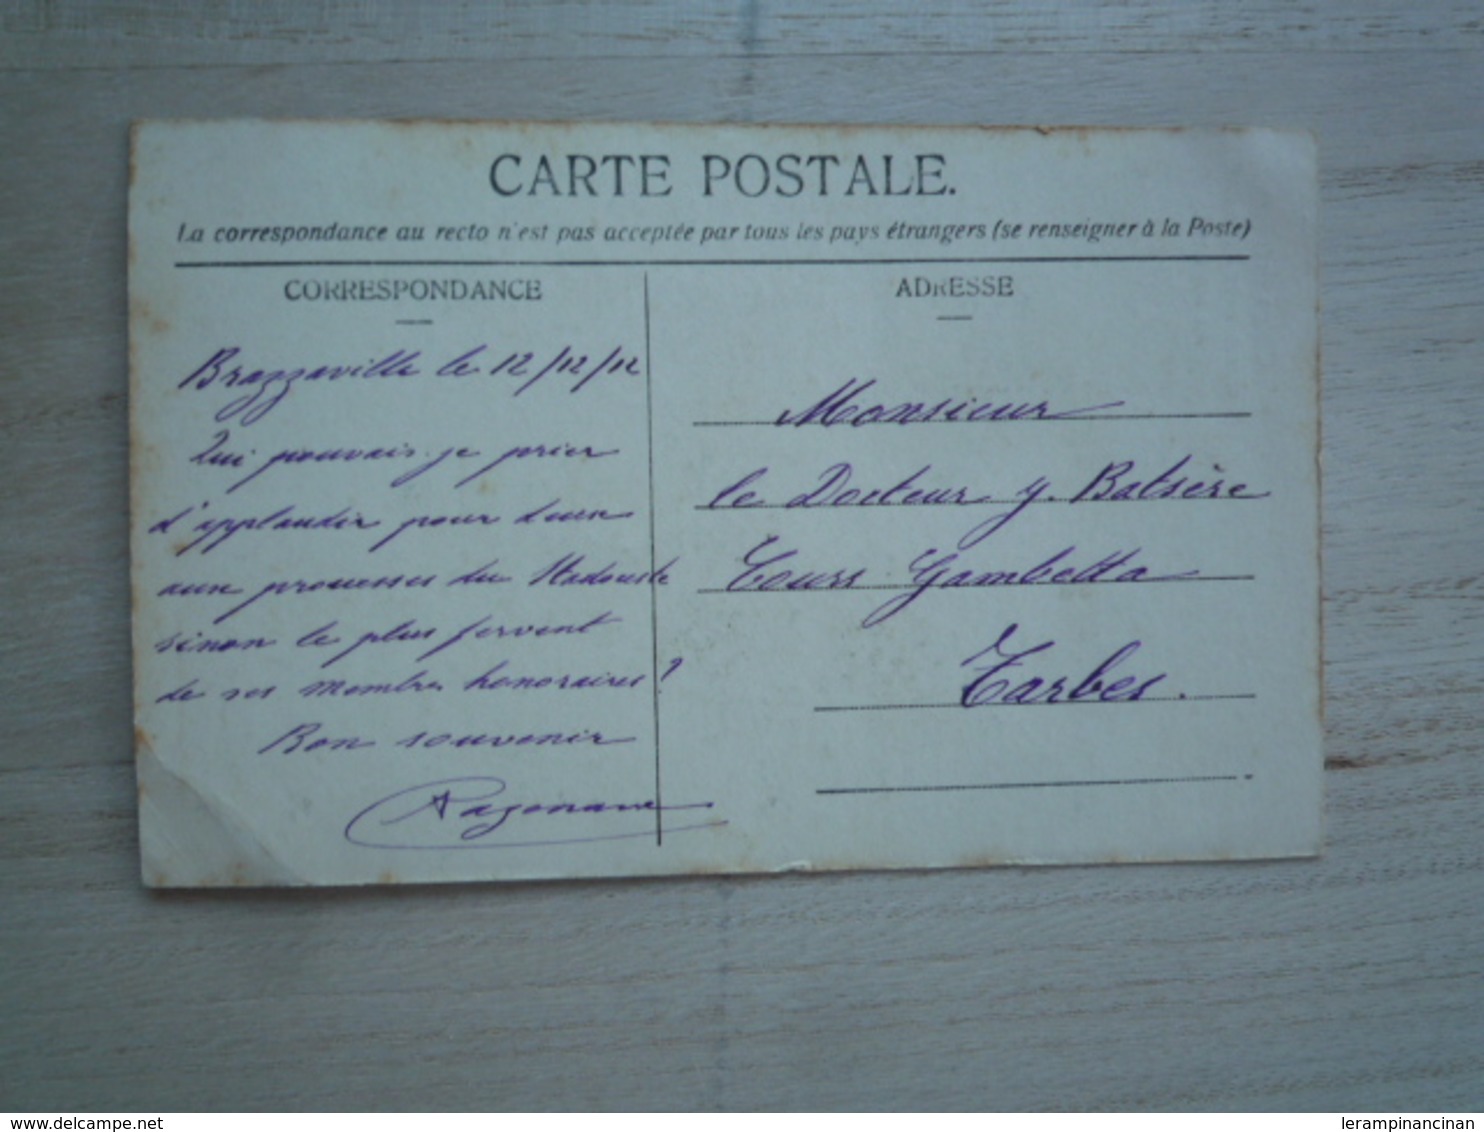 CARTE POSTALE.
La correspondance au recto n'est pas acceptée par tous les pays étrangers (se renseigner à la Poste)
CORRESPONDANCE
Brazzaville le 12/12/12
Qui pouvais-je prier
d'applaudir pour deux
aux prouesses du Stadouste
sinon le plus fervent
de ses membres honoraires ?
Bon souvenir
ADRESSE
Monsieur
le Docteur y. Batsère
Cours Gambetta
Tarbes.
delcampe.net
lerampinancinan